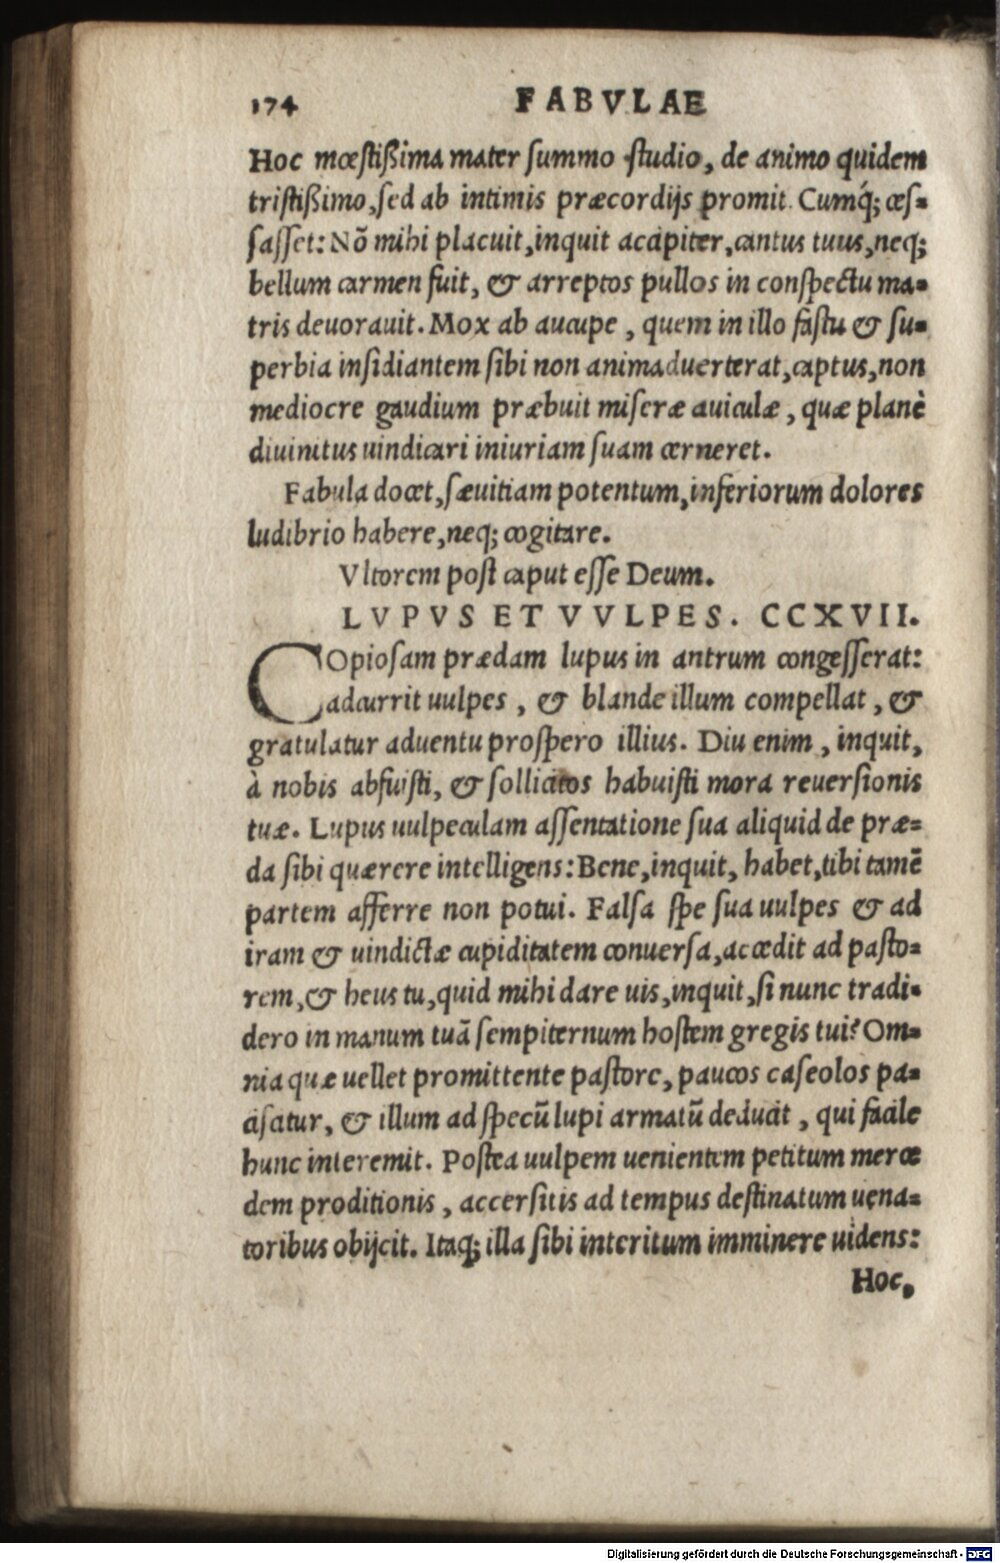 174 FABVLAE
Hoc mœstißima mater summo studio, de animo quidem
tristißimo, sed ab intimis præcordijs promit. Cumq́; ces-
sasset: Nõ mihi placuit, inquit accipiter, cantus tuus, neq;
bellum carmen fuit, & arreptos pullos in conspectu ma-
tris deuorauit. Mox ab aucupe, quem in illo fastu & su-
perbia insidiantem sibi non animaduerterat, captus, non
mediocre gaudium præbuit miseræ auiculæ, quæ planè
diuinitus uindicari iniuriam suam cerneret.
Fabula docet, sæuitiam potentum, inferiorum dolores
ludibrio habere, neq; cogitare.
Vltorem post caput esse Deum.
LVPVS ET VVLPES. CCXVII.
COpiosam prædam lupus in antrum congesserat:
adcurrit uulpes, & blande illum compellat, &
gratulatur aduentu prospero illius. Diu enim, inquit,
à nobis abfuisti, & sollicitos habuisti mora reuersionis
tuæ. Lupus uulpeculam assentatione sua aliquid de præ-
da sibi quærere intelligens: Bene, inquit, habet, tibi tamẽ
partem afferre non potui. Falsa spe sua uulpes & ad
iram & uindictæ cupiditatem conuersa, accedit ad pasto-
rem, & heus tu, quid mihi dare uis, inquit, si nunc tradi-
dero in manum tuã sempiternum hostem gregis tui? Om-
nia quæ uellet promittente pastore, paucos caseolos pa-
ciscatur, & illum ad specũ lupi armatũ deducit, qui facile
hunc interemit. Postea uulpem uenientem petitum merce
dem proditionis, accersitis ad tempus destinatum uena-
toribus obijcit. Itaq; illa sibi interitum imminere uidens:
Hoc,
Digitalisierung gefördert durch die Deutsche Forschungsgemeinschaft - DFG